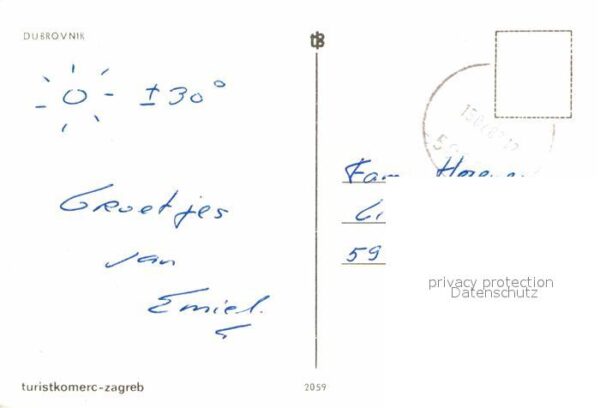 DUBROVNIK
± 30°
Groetjes
van
Emiel.
Fam.
59
privacy protection
Datenschutz
turistkomerc-zagreb
2059